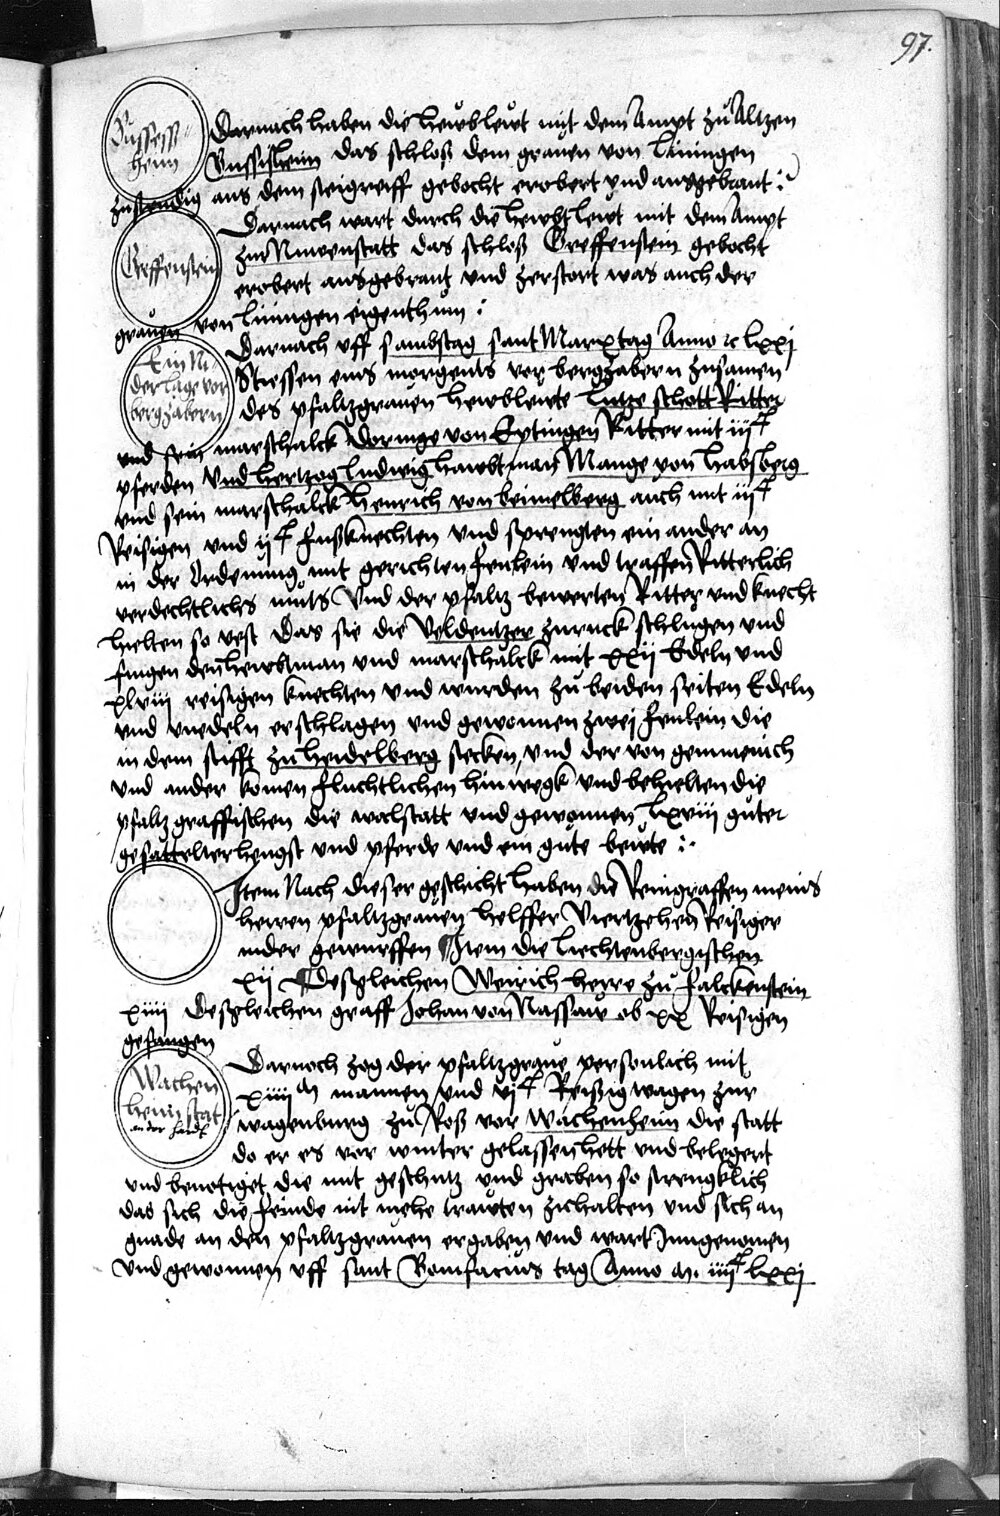 97.
Russess-
heim
Darnach haben die hewbtlewt mit dem Ampt zu Altzen
Russisheim das schloß dem grauen von Liningen
zustendig aus dem steigreiff gebocht erobert vnd ausgebrant :
Greffenstein
Darnach wart durch die hewbtlewt mit dem Ampt
zur Nuwenstatt das schloß Greffenstein gebocht
erobert ausgebrant vnd zerstort was auch der
grauen von Liningen eigenthum :
Ein Ni-
derlage vor
bergzabern
Darnach vff sambstag sant Marx tag Anno &c lxxj
Stiessen eins morgents vor bergzabern zusamen
des pfaltzgrauen hewbtlewte Lutze schott Ritter
vnd sein marschalck Doringe von Eptingen Ritter mit iijC
pferden Vnd hertzog Ludwig hawbtman Mange von habsberg
vnd sein marschalck Henrich von keimelberg auch mit iijC
Reisigen vnd ijC fußknechten vnd sprengten ein ander an
in der Ordenung mit gerichten fenlein vnd traffen Ritterlich
verdechtlichs muts Vnd der pfaltz bewerten Ritter vnd knecht
hielten so vest Das sie die Veldentzer zuruck schlugen vnd
fingen den hewbtman vnd marschalck mit xxij Edeln vnd
xlviij reisigen knechten vnd wurden zu beiden seiten Edeln
vnd vnedeln erschlagen vnd gewonnen zwej fenlein die
in dem stifft zu heidelberg stecken, vnd der von gemmenich
vnd ander komen fluchtlichen hinwegk vnd behielten die
pfaltzgraffischen die walstatt vnd gewonnen lxviij guter
gesattelter hengst vnd pferde vnd ein gute bewte :
Item Nach dieser geschicht haben die Reingraffen meins
herren pfaltzgrauen helffer Viertzehen Reisiger
nider geworffen Item die Liechtenbergischen
xij Desgleichen Weirich herre zu falckenstein
xiiij Desgleichen graff Johan von Nassaw ob xx Reisigen
gefangen
Wachen
heim stat
an der hardt
Darnoch zog der pfaltzgraue personlich mit
xiiijM mannen vnd vjC Reisig wagen zur
wagenburg zu Roß vor Wachenheim die statt
do er es vor winter gelassen hett vnd belegert
vnd benotiget die mit geschutz vnd graben so strengklich
das sich die feinde nit mehe trawten zuhalten vnd sich an
gnade an den pfaltzgrauen ergaben vnd wart Inngenomen
Vnd gewonnen vff sant Bonifacius tag Anno m. iiijC lxxj